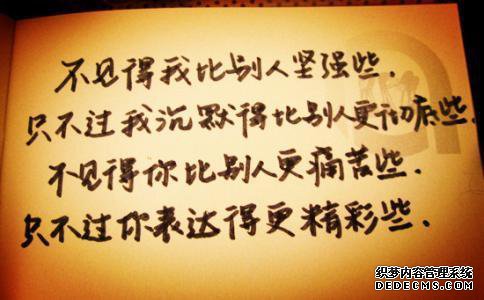 不见得我比别人坚强些.
只不过我沉默得比别人更彻底些.
不见得你比别人更痛苦些.
只不过你表达得更精彩些.
织梦内容管理系统
DEDECMS.COM